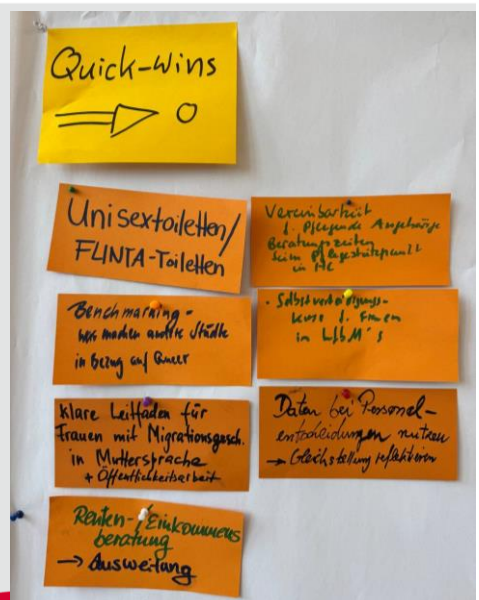 Quick-wins
Unisextoiletten/
FLINTA-Toiletten
Benchmarking -
was machen andere Städte
in Bezug auf Queer
klare Leitfäden für
Frauen mit Migrationsgesch.
in Muttersprache
+ Öffentlichkeitsarbeit
Renten-/Einkommens
beratung
→ Ausweitung
Vereinbarkeit
f. Pflegende Angehörige
Beratungszeiten
beim
in
- Selbstverteidigungs-
kurse f. Frauen
in WfbM's
Daten bei Personal-
entscheidungen nutzen
→ Gleichstellung reflektieren